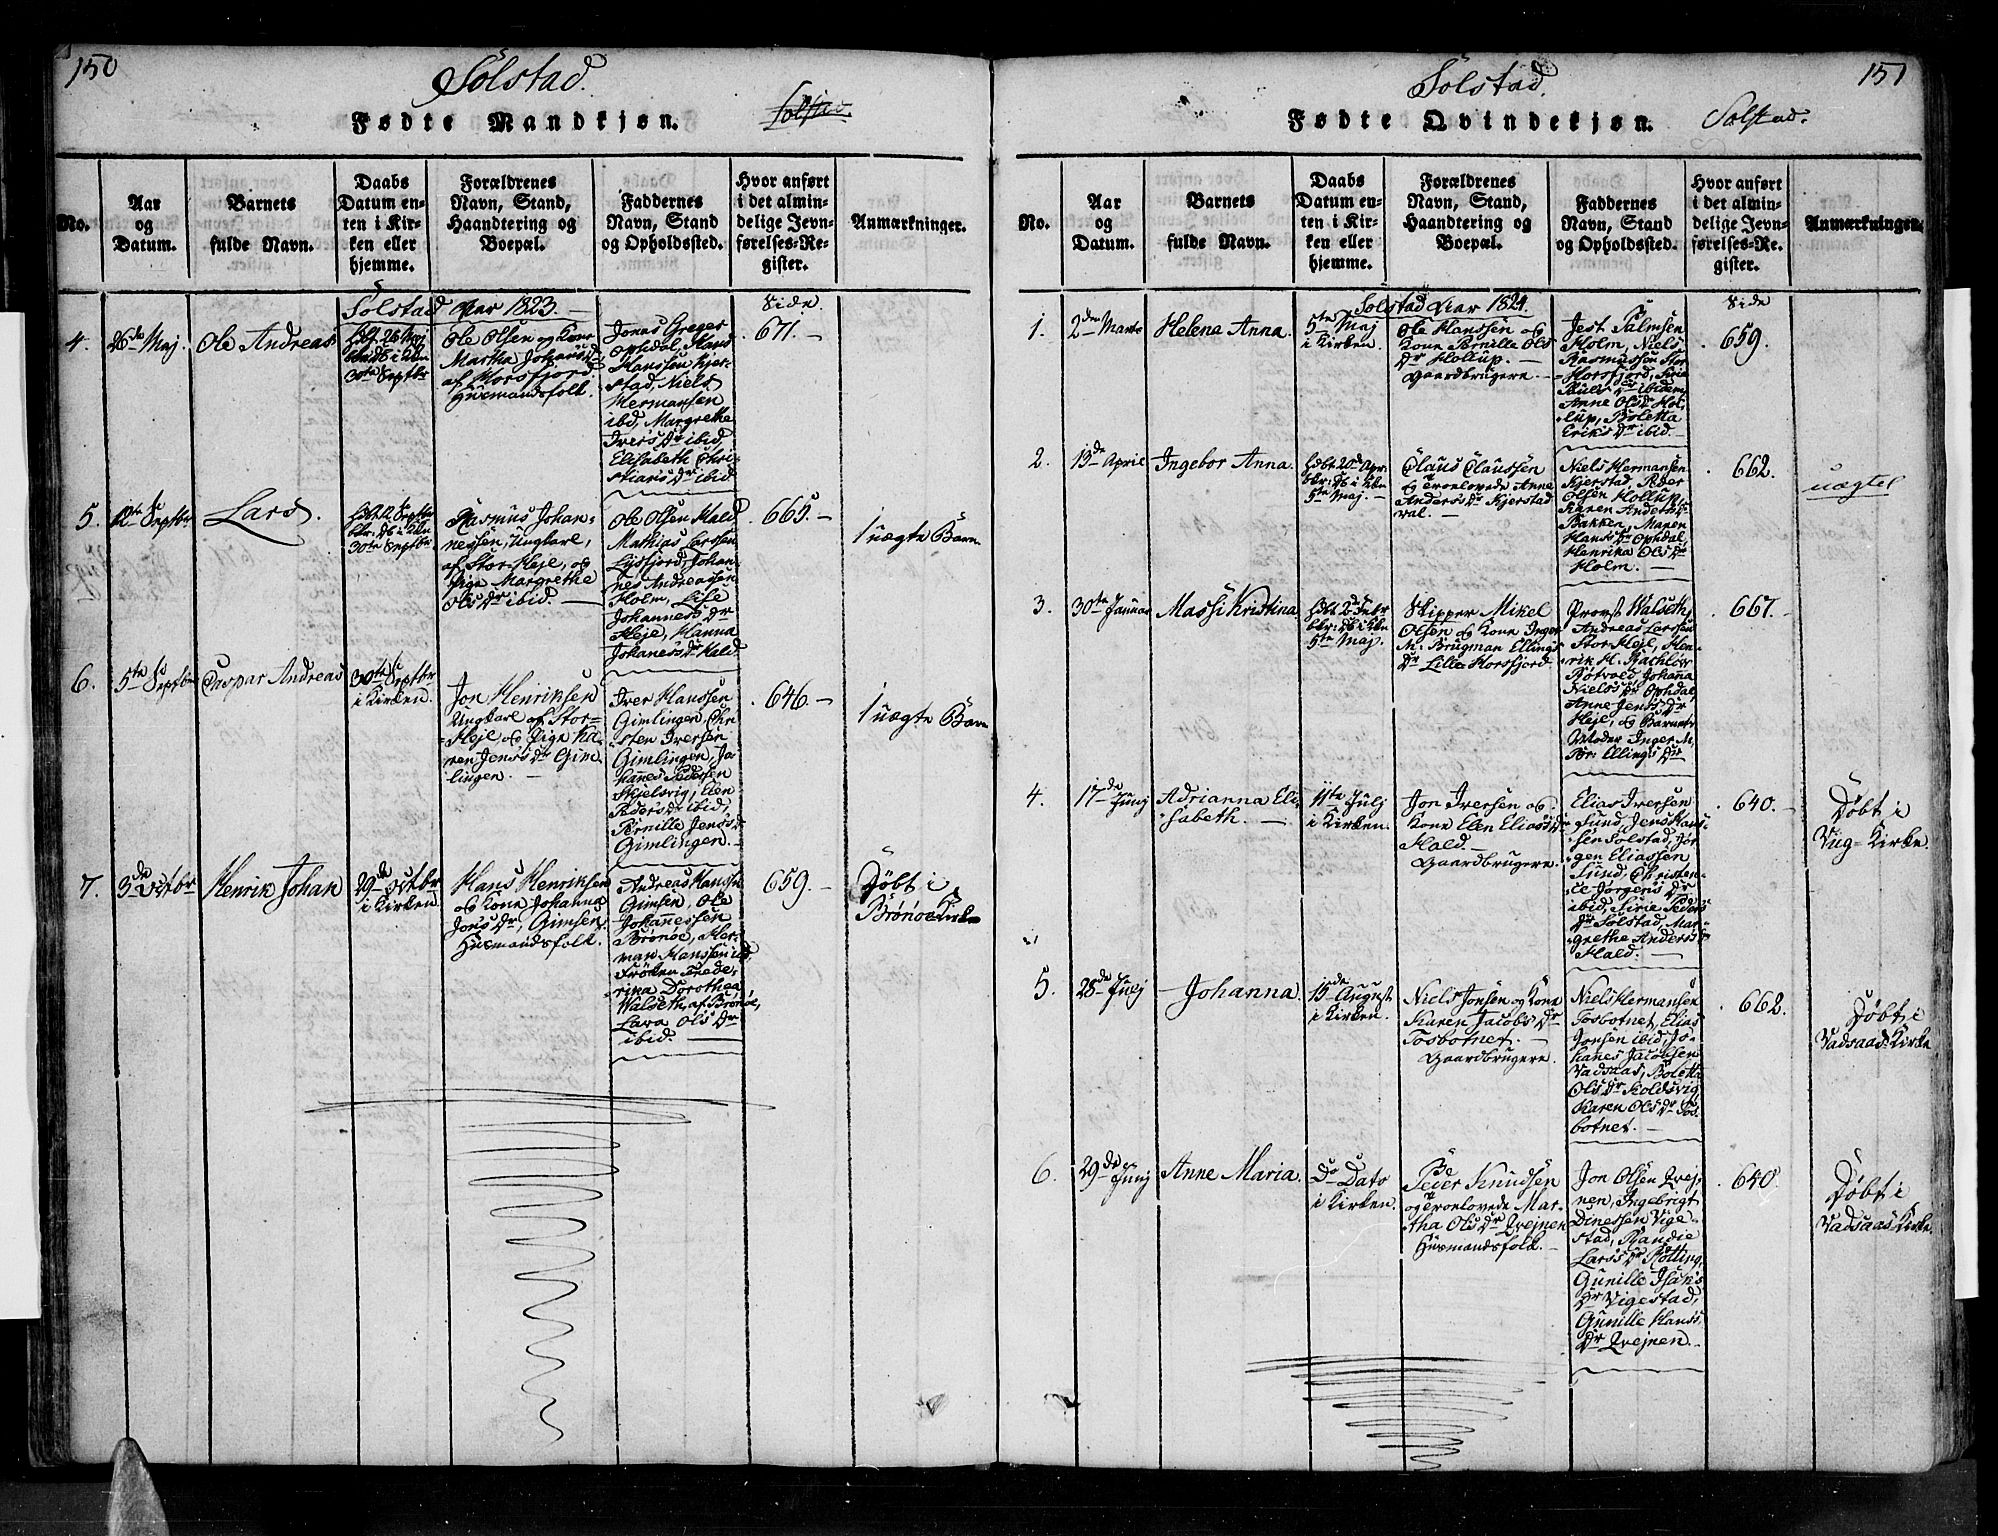 150
Solstad.
Fødte Mandkjøn.
Solstad.
No.
Aar
og
Datum.
Barnets
fulde Navn.
Daabs
Datum en-
ten i Kir-
ken eller
hjemme.
Forældrenes
Navn, Stand,
Haandtering og
Boepæl.
Faddernes
Navn, Stand
og Opholdssted.
Hvor anført
i det almin-
delige Jevn-
førelses-Re-
gister.
Anmærkninger.
Solstad Aar 1823.
Side
4.
26de Maj.
Ole Andreas
30te Septbr
Ole Olsen og Kone
Martha Johans Dr
af Horsfjord
Huusmandsfolk.
Jonas Greger
Ophdal, Hans
Hanssen Kjer-
stad, Niels
Hermansen
ibd, Margrethe
Ivers Dr ibid,
Elisabeth Chri-
stians Dr ibid
671.
5.
12te Septbr
Lars.
30te Septbr
Rasmus Johan-
nessen, Ungkarl,
af Stor-Heje, og
Pige Margrethe
Ols Dr ibid.
Ole Olsen Hald
Mathias Larssen
Lysfjord, Johan-
nes Andreassen
Holm, Lise
Johannes Dr
Heje, Hanna
Johanes Dr Hald
665.
1 uægte Barn
6.
5te Septbr
Caspar Andreas
30te Septbr
i Kirken.
Jon Henriksen
Ungkarl af Stor-
Heje og Pige Ka-
ren Jens Dr Gim-
lingen.
Iver Hanssen
Gimlingen, Chri-
sten Iversen
Gimlingen, Jo-
hannes Pedersen
Skjelsvig, Elen
Peders Dr ibid,
Pernille Jens Dr
Gimlingen.
646.
1 uægte Barn
7.
3de Octbr
Henrik Johan
29de Octbr
i Kirken.
Hans Henriksen
og Kone Johanna
Jons Dr, Gimsen.
Huusmandsfolk.
Andreas Hanssen
Gimsen, Ole
Johannessen
Brønøe, Her-
man Hanssen ibd,
Frøken Frede-
rica Dorothea
Walseth, af Brønøe,
Lava Ols Dr
ibid.
659.
Døbt i
Brønoe Kirke
151
Solstad.
Fødte Qvindekjøn.
Solstad.
No.
Aar
og
Datum.
Barnets
fulde Navn.
Daabs
Datum en-
ten i Kir-
ken eller
hjemme.
Forældrenes
Navn, Stand,
Haandtering og
Boepæl.
Faddernes
Navn, Stand
og Opholdssted.
Hvor anført
i det almin-
delige Jevn-
førelses-Re-
gister.
Anmærkninger.
Solstad Aar 1824.
Side
1.
2den Marts
Helena Anna.
5te Maj
i Kirken.
Ole Hanssen og
Kone Pernille Ols
Dr Hollup.
Gaardbrugere.
Jest. Palmsen
Holm, Niels
Rasmussen Stor
Horsfjord, Sirie
Pauls Dr ibidem,
Anne Ols Dr Hol-
lup, Boletta
Eriks Dr ibid.
659.
2.
13de April
Ingebor Anna.
5te Maj.
Claus Claussen
og Trolovede Anne
Anders Dr Kjerstad
val.
Niels Hermansen
Kjerstad, Peder
Olsen Hollup,
Karen Anders Dr
Bakken, Maren
Hans Dr Ophdal,
Henrika Ols Dr
Holm.
662.
uægte
3.
30te Januar
Massi Kristina
5te Maj.
Skipper Mikel
Olsen og Kone Inger
M. Brugman Ellings
Dr Lille Horsfjord.
Provst Walseth,
Andreas Larssen
Stor Heje, Hen-
rik H. Rachlow
Botvold, Johana
Niels Dr Ophdal,
Anne Jens Dr
Heje, og Barnets
Moder Inger M.
Br: Ellings Dr
667.
4.
17de Junj
Adrianna Eli-
sabeth.
11te Julj
i Kirken.
Jon Iversen og
Kone Elen Elias Dr
Hald.
Gaardbrugere.
Elias Iversen
Sund, Jens Hans-
sen Solstad, Jør-
gen Eliassen
Sund, Christen-
ce Jørgens Dr
ibid, Sirie Peders
Dr Solstad, Mar-
grethe Anders Dr
Hald.
640.
Døbt i
Vug-Kirke.
5.
28de Julj
Johanna.
15de August
i Kirken.
Niels Jonsen og Kone
Karen Jacobs Dr
Tosbotnet.
Gaardbrugere.
Niels Hermansen
Tosbotnet, Elias
Jonsen ibid, Jo-
hanes Jacobsen
Vadsaas, Boletta
Ols Dr Koldsvig
Karen Ols Dr Tos-
botnet.
662.
Døbt i
Vadsaas-Kirke
6.
29de Junj
Anne Maria.
Do Dato
i Kirken.
Peder Knudsen
og Trolovede Mar-
tha Ols Dr Qvejnen
Huusmandsfolk.
Jon Olsen Qvej-
nen, Ingebrigt
Dinessen Vige-
stad, Randie
Lars Dr Røtting,
Gunille Isaks
Dr Vigestad,
Gunille Hans
Dr Qvejnen.
640.
Døbt i
Vadsaas-Kirke